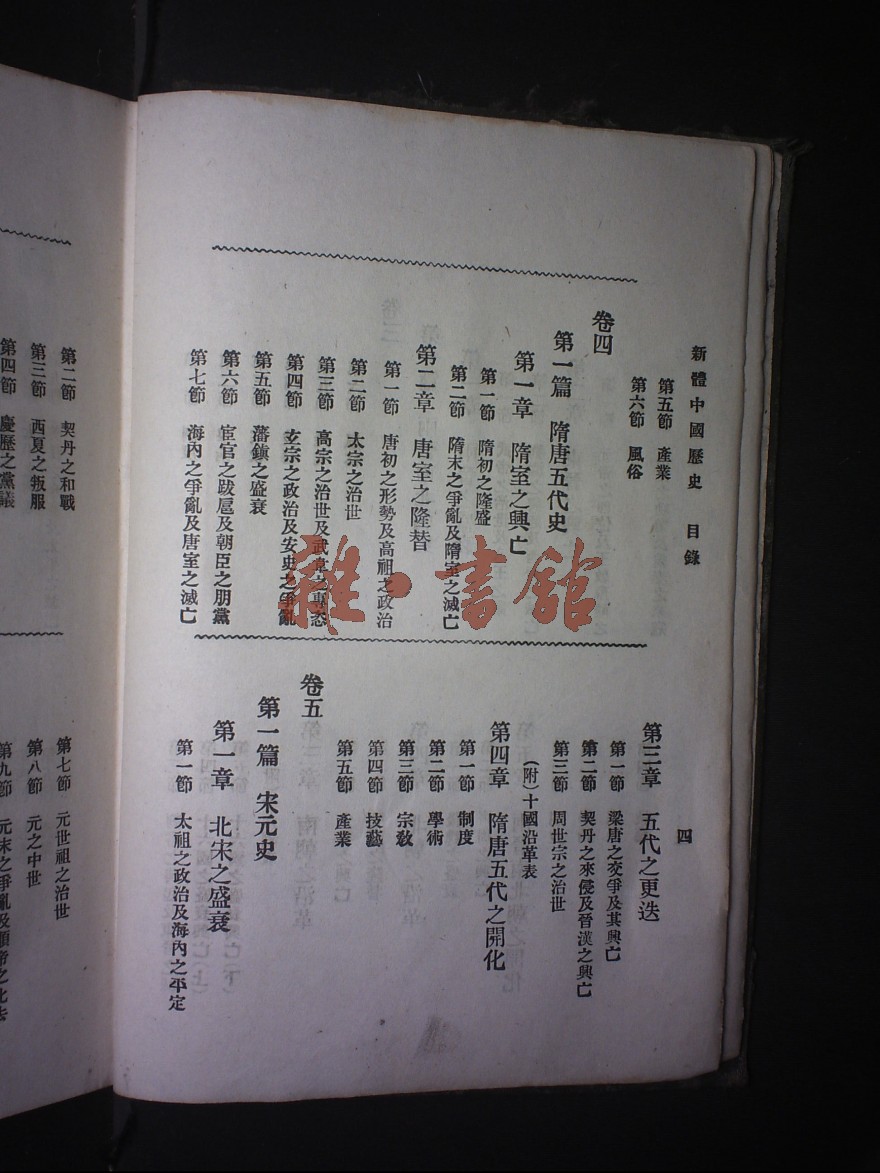 新體中國歷史 目錄
四
第五節 產業
第六節 風俗
卷四
第一篇 隋唐五代史
第一章 隋室之興亡
第一節 隋初之隆盛
第二節 隋末之爭亂及隋室之滅亡
第二章 唐室之隆替
第一節 唐初之形勢及高祖之政治
第二節 太宗之治世
第三節 高宗之治世及武韋之專恣
第四節 玄宗之政治及安史之爭亂
第五節 藩鎮之盛衰
第六節 宦官之跋扈及朝臣之朋黨
第七節 海內之爭亂及唐室之滅亡
第三章 五代之更迭
第一節 梁唐之交爭及其興亡
第二節 契丹之來侵及晉漢之興亡
第三節 周世宗之治世
(附)十國沿革表
第四章 隋唐五代之開化
第一節 制度
第二節 學術
第三節 宗敎
第四節 技藝
第五節 產業
卷五
第一篇 宋元史
第一章 北宋之盛衰
第一節 太祖之政治及海內之平定
第二節 契丹之和戰
第三節 西夏之叛服
第四節 慶歷之黨議
第七節 元世祖之治世
第八節 元之中世
第九節 元末之爭亂及順帝之北去
雜·書館